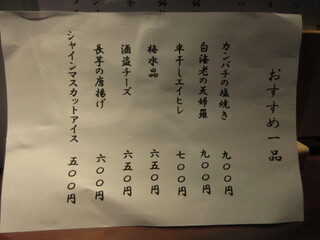 おすすめ一品
カンパチの塩焼き 九〇〇円
白海老の天婦羅 九〇〇円
半干しエイヒレ 七〇〇円
椿水晶 六五〇円
酒盗チーズ 六五〇円
長芋の唐揚げ 六〇〇円
シャインマスカットアイス 五〇〇円